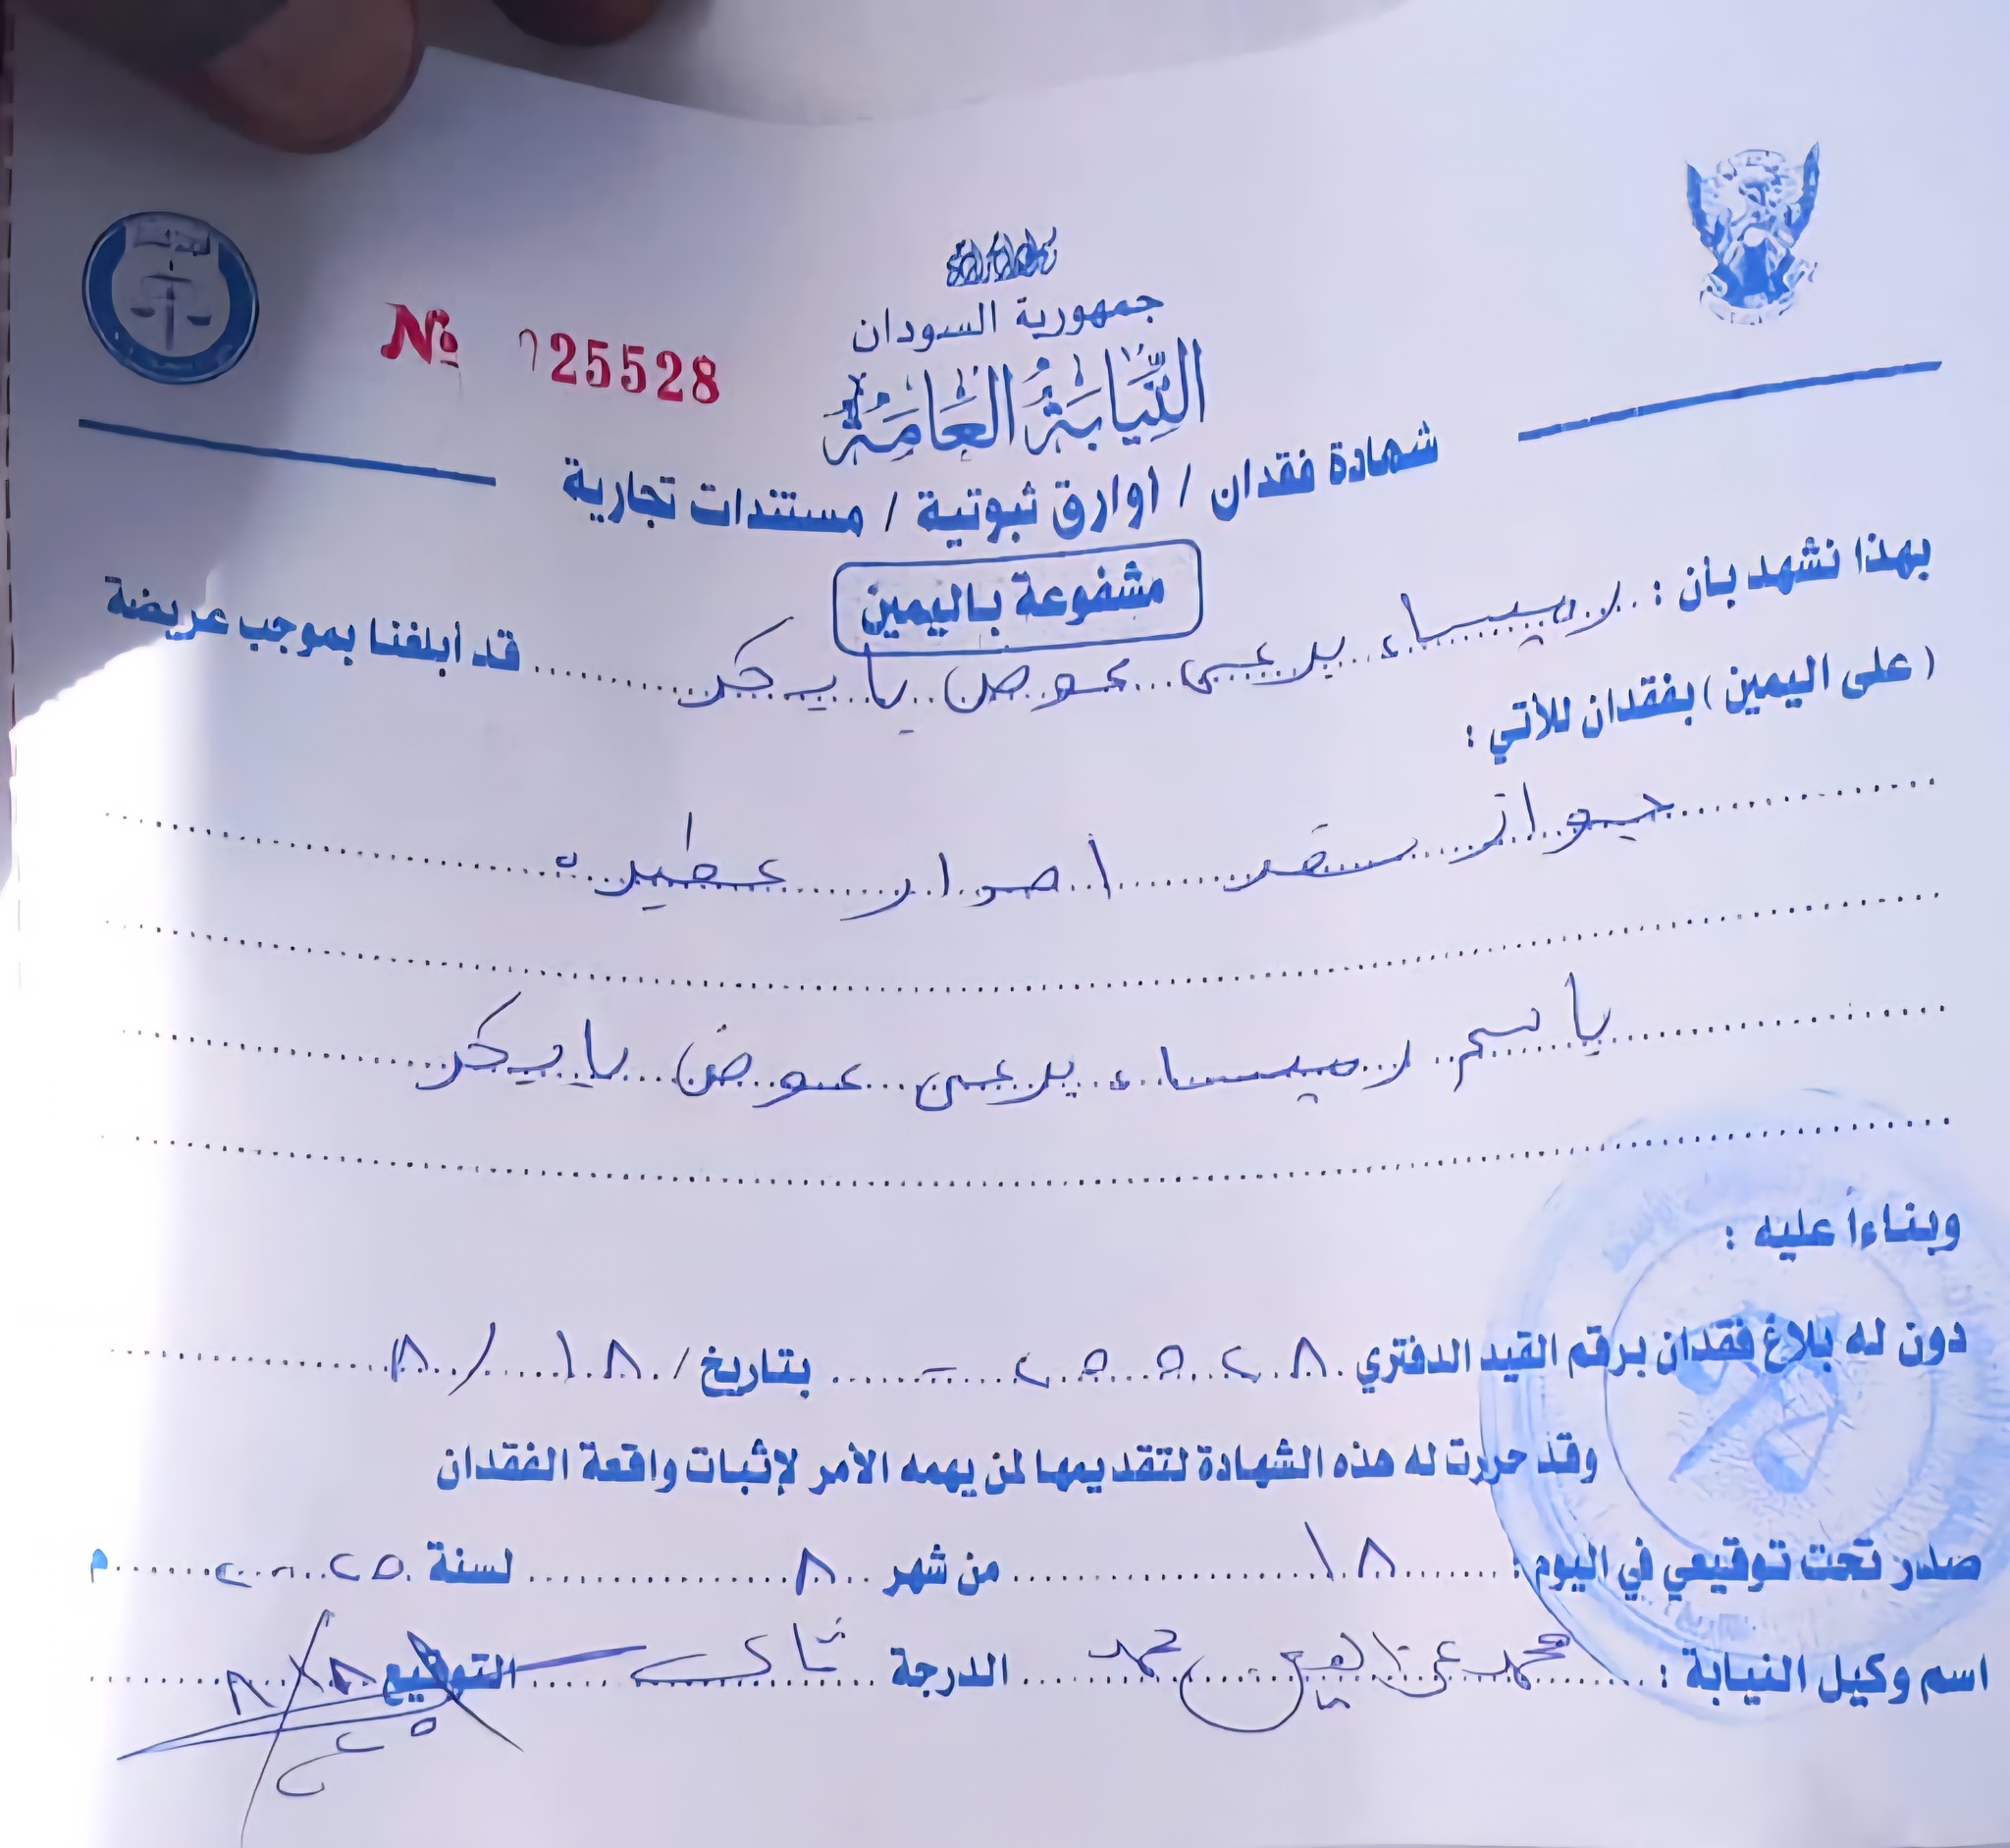 جمهورية السودان
النيابة العامة
№ 25528
شهادة فقدان / أوارق ثبوتية / مستندات تجارية
مشفوعة باليمين
بهذا نشهد بأن : لاميساء يرعى عوض بابكر قد أبلغنا بموجب عريضة
(على اليمين) بفقدان للأتي :
جواز سفر اصدار عطبره
باسم لاميساء يرعى عوض بابكر
وبناءاً عليه :
دون له بلاغ فقدان برقم القيد الدفتري ٢٥٥٢٨ بتاريخ / ١٨/٨
وقد حررت له هذه الشهادة لتقديمها لمن يهمه الأمر لإثبات واقعة الفقدان
صدر تحت توقيعي في اليوم : ١٨ من شهر ٨ لسنة ٢٠٢٥ م
اسم وكيل النيابة : محمد محمد الدرجة التوقيع